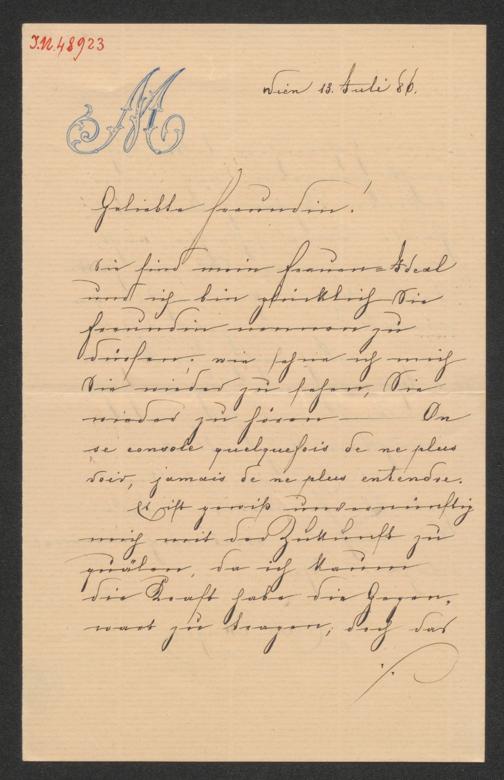 I.N.48923
M
Wien 13. Juli 86.
Geliebte Freundin!
Sie sind mein Frauen-Ideal
und ich bin glücklich Sie
Freundin nennen zu
dürfen; wie sehne ich mich
Sie wieder zu sehen, Sie
wieder zu hören — On
se console quelquefois de ne plus
voir, jamais de ne plus entendre.
Es ist gewiß unvernünftig
mich mit der Zukunft zu
quälen, da ich kaum
die Kraft habe die Gegen-
wart zu tragen; doch das
./.